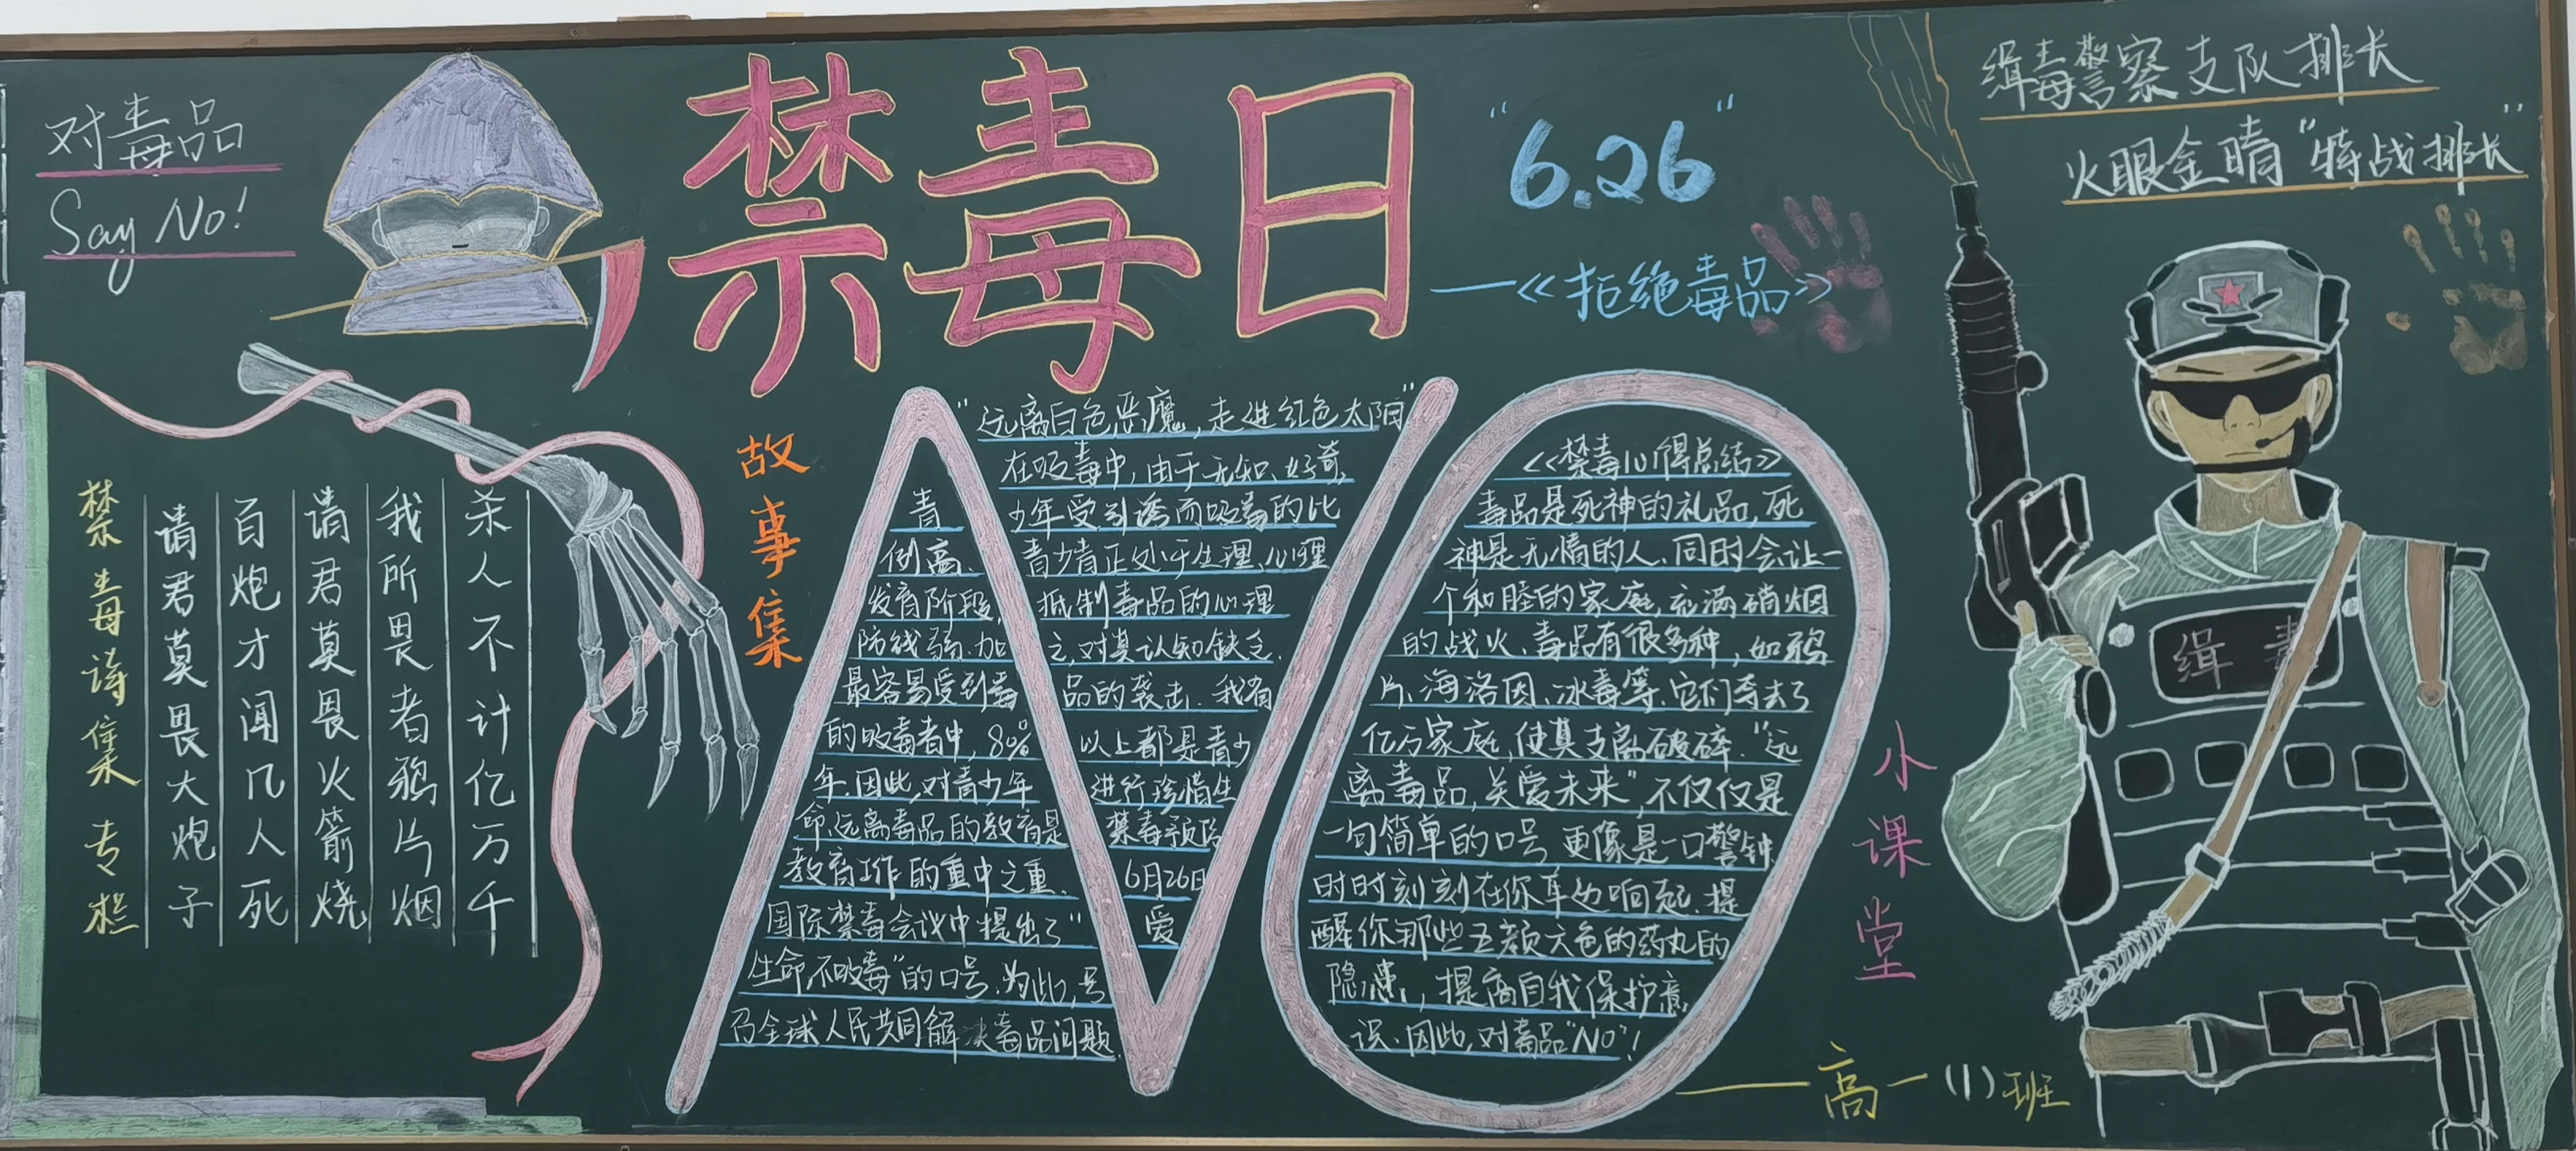 对毒品
Say No!
禁毒日
"6.26"
——《拒绝毒品》
缉毒警察支队排长
火眼金睛"特战排长"
禁毒诗集专栏
请君莫畏大炮子
百炮才闻几人死
请君莫畏火箭烧
我所畏者鸦片烟
杀人不计亿万千
故事集
"远离白色恶魔,走进红色太阳"
在吸毒中,由于无知、好奇,
青少年受引诱而吸毒的比
例高、青少者正处于生理、心理
发育阶段,抵制毒品的心理
防线弱、加之,对其认知缺乏.
最容易受到毒品的袭击.我省
的吸毒者中,80%以上都是青少
年.因此,对青少年进行珍惜生
命,远离毒品的教育是禁毒预防
教育工作的重中之重.6月26日
国际禁毒会议中提出了"爱
生命,不吸毒"的口号.为此,号
召全球人民共同解决毒品问题.
《禁毒心得总结》
毒品是死神的礼品,死
神是无情的人.同时会让一
个和睦的家庭,充满硝烟
的战火、毒品有很多种,如鸦
片、海洛因、冰毒等.它们夺去了
亿万家庭,使其支离破碎."远
离毒品,关爱未来",不仅仅是
一句简单的口号,更像是一口警钟,
时时刻刻在你耳边响起.提
醒你那些五颜六色的药丸的
隐患,提高自我保护意
识、因此,对毒品"NO"!
小课堂
缉毒
——高一(1)班
NO